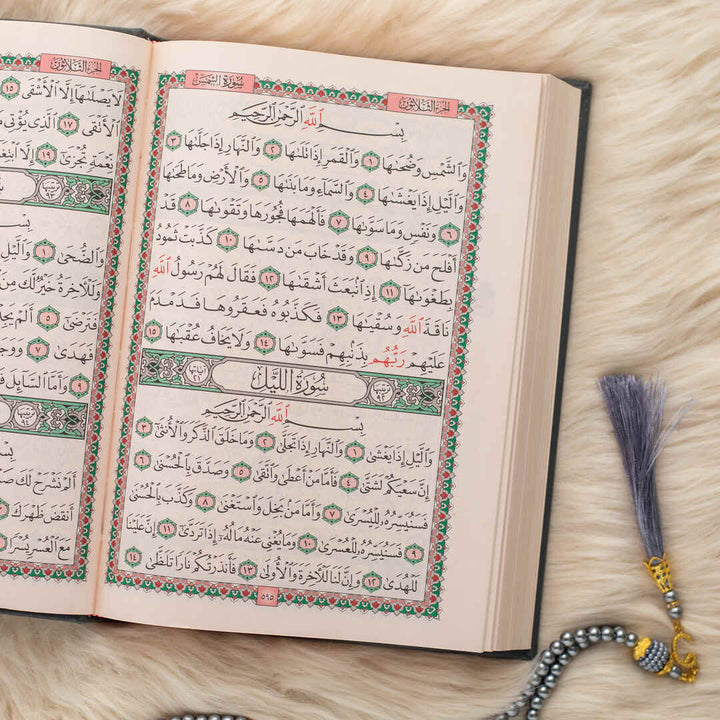 سورة الشمس
الجزء الثلاثون
بسم الله الرحمن الرحيم
والشمس وضحىٰها ١ والقمر إذا تلىٰها ٢ والنهار إذا جلىٰها ٣
واليل إذا يغشىٰها ٤ والسماء وما بنىٰها ٥ والأرض وما طحىٰها
٦ ونفس وما سوىٰها ٧ فألهمها فجورها وتقوىٰها ٨ قد
أفلح من زكىٰها ٩ وقد خاب من دسىٰها ١٠ كذبت ثمود
بطغوىٰها ١١ إذ انبعث أشقىٰها ١٢ فقال لهم رسول الله
ناقة الله وسقيٰها ١٣ فكذبوه فعقروها فدمدم
عليهم ربهم بذنبهم فسوىٰها ١٤ ولا يخاف عقبٰها ١٥
سورة الليل
بسم الله الرحمن الرحيم
واليل إذا يغشىٰ ١ والنهار إذا تجلىٰ ٢ وما خلق الذكر والأنثىٰ ٣
إن سعيكم لشتىٰ ٤ فأما من أعطىٰ واتقىٰ ٥ وصدق بالحسنىٰ ٦
فسنيسره لليسرىٰ ٧ وأما من بخل واستغنىٰ ٨ وكذب بالحسنىٰ
٩ فسنيسره للعسرىٰ ١٠ وما يغني عنه ماله إذا تردىٰ ١١ إن علينا
للهدىٰ ١٢ وإن لنا للآخرة والأولىٰ ١٣ فأنذرتكم نارا تلظىٰ ١٤
٥٩٥
الجزء الثلاثون
لا يصلىٰها إلا الأشقى ١٥
الأتقى ١٧ الذي يؤتي
نعمة تجزىٰ ١٩ إلا ابتغا
بس
والضحىٰ ١ واليل
وللآخرة خير لك من
فترضىٰ ٥ ألم يج
فهدىٰ ٧ ووجد
٩ وأما السائل ف
بس
ألم نشرح لك صد
أنقض ظهرك ٣
مع العسر يسرا ٥